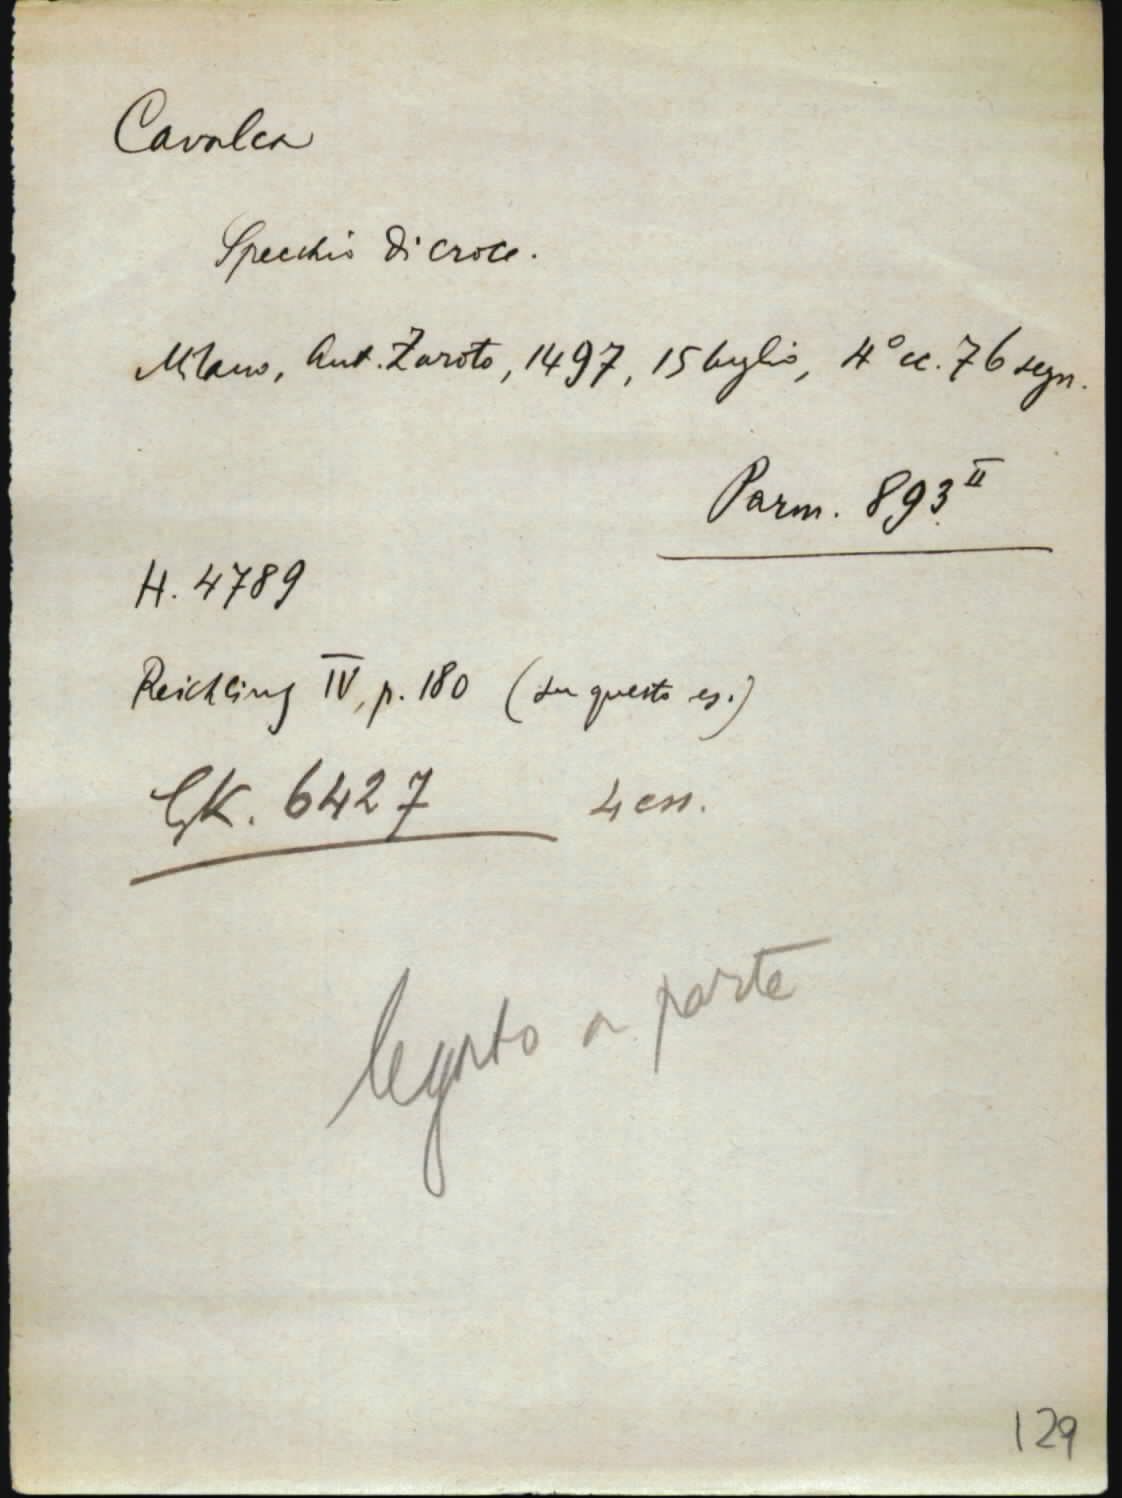 Cavalca
Specchio di croce.
Milano, Ant. Zaroto, 1497, 15 luglio, 4° cc. 76 segn.
Parm. 893 II
H. 4789
Reichling IV, p. 180 (su questo es.)
GK. 6427 4 es.
legato a parte
129